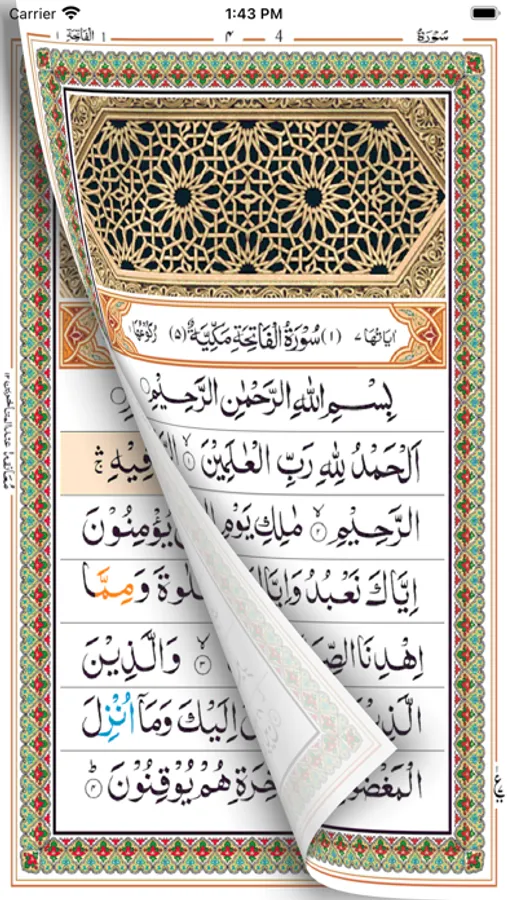 Carrier 1:43 PM
سُوْرَةُ 4 ٤ اَلْفَاتِحَة ١
اٰيَاتُهَا ٧ (١) سُوْرَةُ الْفَاتِحَةِ مَكِّيَّةٌ (٥) رُكُوْعُهَا ١
بِسْمِ اللّٰهِ الرَّحْمٰنِ الرَّحِيْمِ
اَلْحَمْدُ لِلّٰهِ رَبِّ الْعٰلَمِيْنَ ۙ﴿١﴾ فِيْهِ ۛۚ
الرَّحِيْمِ ۙ﴿٢﴾ مٰلِكِ يَوْمِ يُؤْمِنُوْنَ
اِيَّاكَ نَعْبُدُ وَاِيَّا لٰوةَ وَمِمَّا
اِهْدِنَا الصِّ ۙ﴿٣﴾ وَالَّذِيْنَ
الَّذِيْ اِلَيْكَ وَمَاۤ اُنْزِلَ
الْمَغْضُوْ خِرَةِ هُمْ يُوْقِنُوْنَ ؕ﴿٤﴾